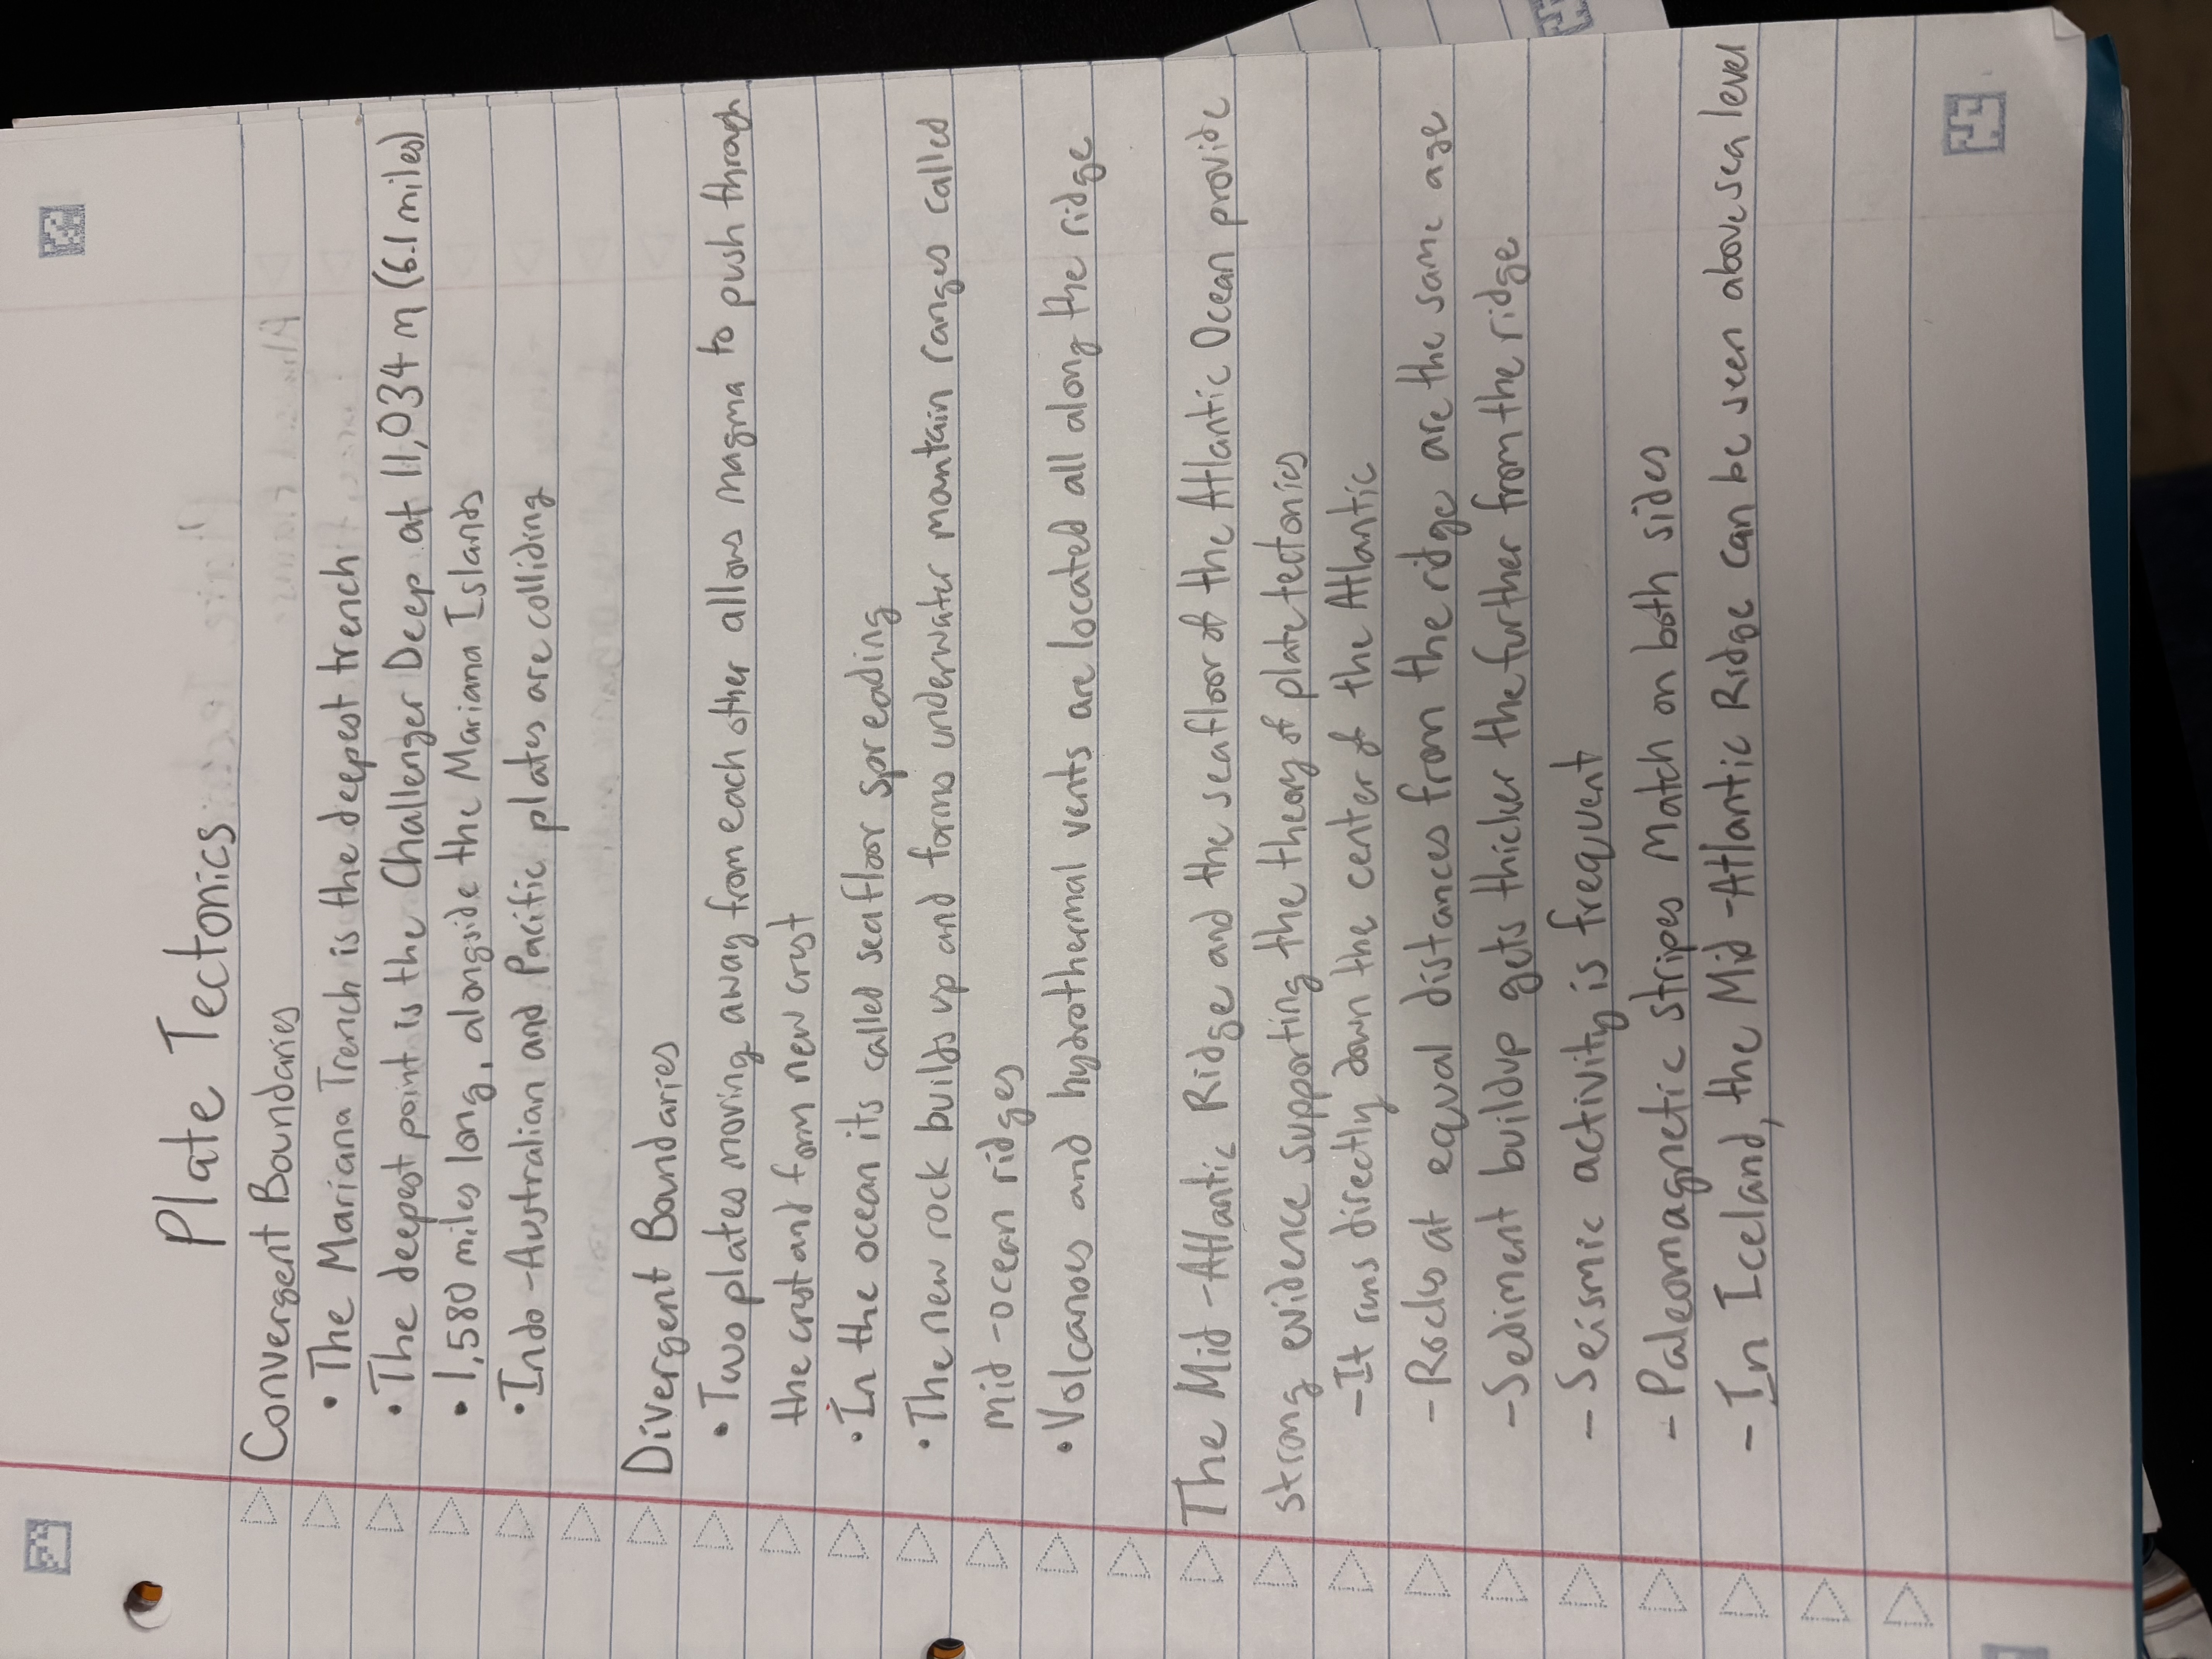 Plate Tectonics
Convergent Boundaries
• The Mariana Trench is the deepest trench
• The deepest point is the Challenger Deep at 11,034 m (6.1 miles)
• 1,580 miles long, alongside the Mariana Islands
• Indo-Australian and Pacific plates are colliding
Divergent Boundaries
• Two plates moving away from each other allows magma to push through
the crust and form new crust
• In the ocean its called seafloor spreading
• The new rock builds up and forms underwater mountain ranges called
mid-ocean ridges
• Volcanoes and hydrothermal vents are located all along the ridge
The Mid-Atlantic Ridge and the seafloor of the Atlantic Ocean provide
strong evidence supporting the theory of plate tectonics
- It runs directly down the center of the Atlantic
- Rocks at equal distances from the ridge are the same age
- Sediment buildup gets thicker the further from the ridge
- Seismic activity is frequent
- Paleomagnetic stripes match on both sides
- In Iceland, the Mid-Atlantic Ridge can be seen above sea level